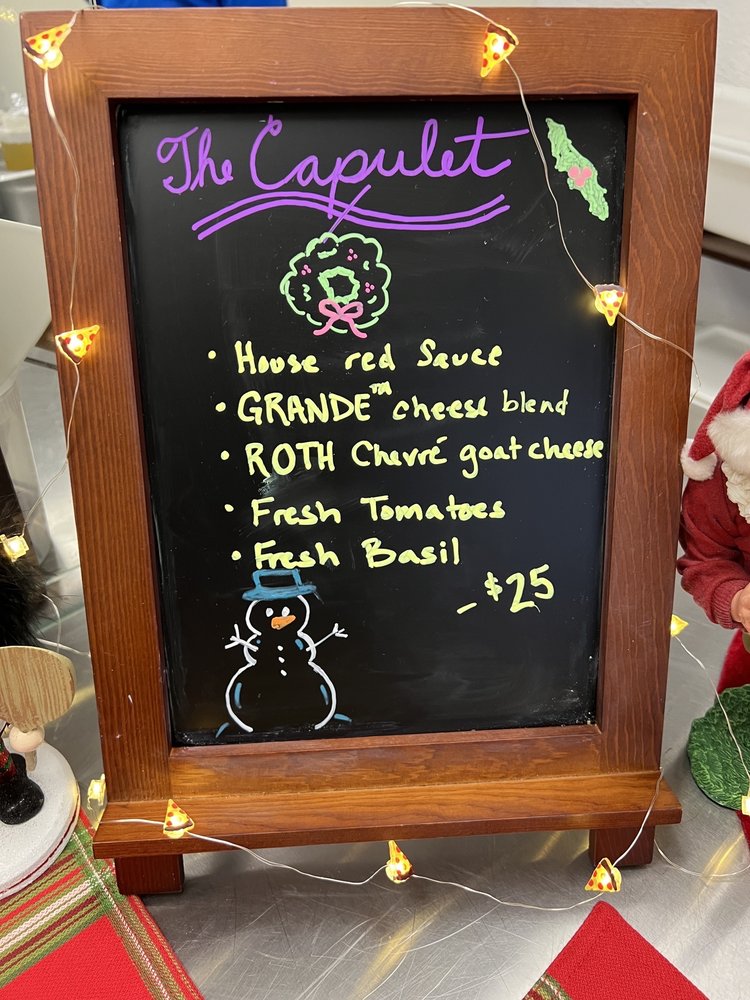 The Capulet
• House red Sauce
• GRANDE™ cheese blend
• ROTH Chevré goat cheese
• Fresh Tomatoes
• Fresh Basil
- $25